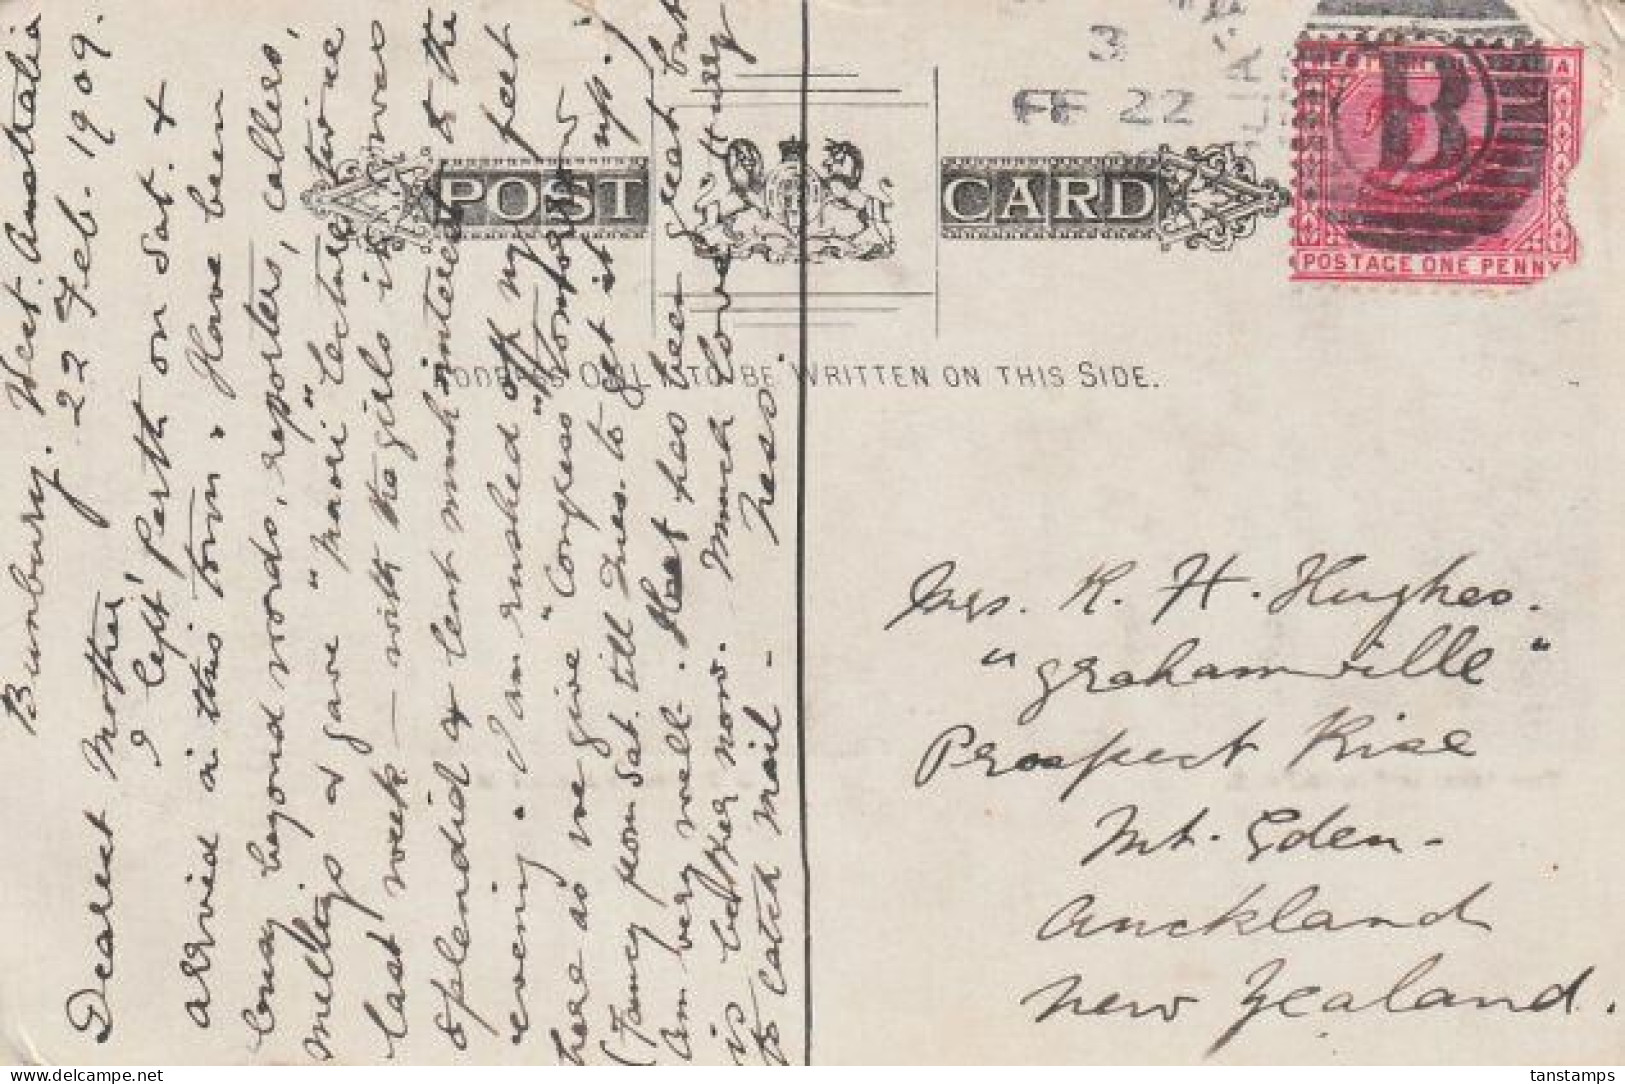 Bunbury. West. Australia
22 Feb. 1909.
Dearest Mother,
I left Perth on Sat. &
arrived in this town & have been
busy beyond words, reporters, callers,
meetings & gave "Maori" lecture twice
last week - with the girls it was
splendid & lent much interest to the
evening. I am rushed off my feet
here as we give "Compess" Tomforrow
(Fancy from Sat. till Tues. to get it up.)
Am very well. Heat has been great but
is better now. Much love
to catch mail - Tess.
POST CARD
ADDRESS ONLY TO BE WRITTEN ON THIS SIDE.
3
FE 22
WESTERN AUSTRALIA
B
POSTAGE ONE PENNY
Mrs. K. H. Hughes.
"Grahamville"
Prospect Rise
Mt. Eden-
Auckland
New Zealand.
tanstamps